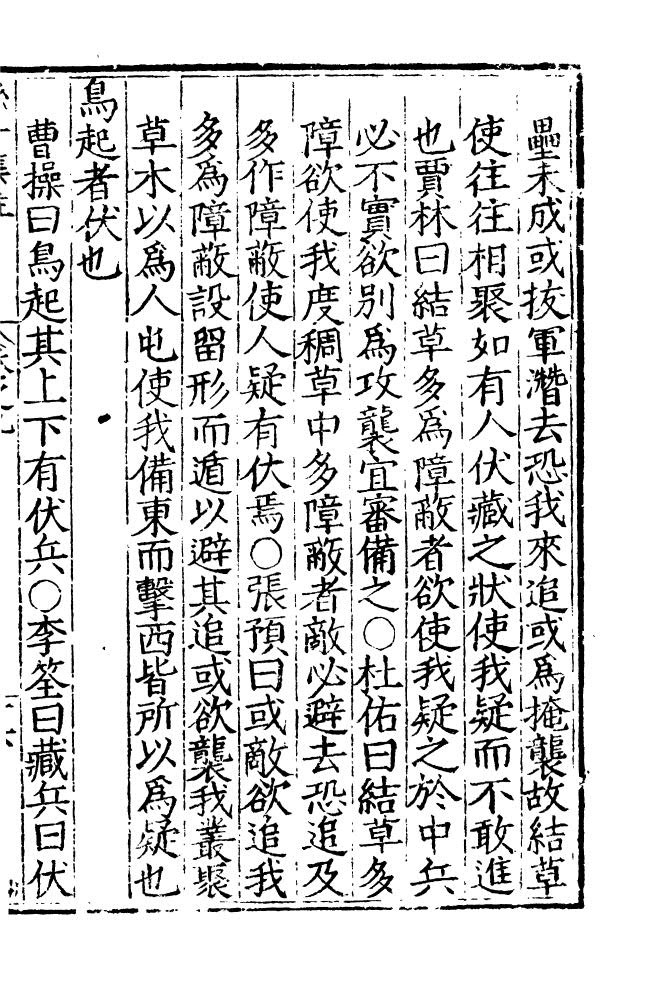 壘未成或拔軍潛去恐我來追或爲掩襲故結草
使往往相聚如有人伏藏之狀使我疑而不敢進
也賈林曰結草多爲障蔽者欲使我疑之於中兵
必不實欲别爲攻襲宜審備之〇杜佑曰結草多
障欲使我度稠草中多障蔽者敵必避去恐追及
多作障蔽使人疑有伏焉〇張預曰或敵欲追我
多爲障蔽設留形而遁以避其追或欲襲我叢聚
草木以爲人屯使我備東而擊西皆所以爲疑也
鳥起者伏也
曹操曰鳥起其上下有伏兵〇李筌曰藏兵曰伏